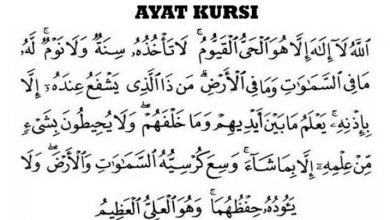 AYAT KURSI
اللَّهُ لَا إِلَٰهَ إِلَّا هُوَ الْحَيُّ الْقَيُّومُ ۚ لَا تَأْخُذُهُ سِنَةٌ وَلَا نَوْمٌ ۚ لَّهُ
مَا فِي السَّمَاوَاتِ وَمَا فِي الْأَرْضِ ۗ مَن ذَا الَّذِي يَشْفَعُ عِندَهُ إِلَّا
بِإِذْنِهِ ۚ يَعْلَمُ مَا بَيْنَ أَيْدِيهِمْ وَمَا خَلْفَهُمْ ۖ وَلَا يُحِيطُونَ بِشَيْءٍ
مِّنْ عِلْمِهِ إِلَّا بِمَا شَاءَ ۚ وَسِعَ كُرْسِيُّهُ السَّمَاوَاتِ وَالْأَرْضَ ۖ وَلَا
يَئُودُهُ حِفْظُهُمَا ۚ وَهُوَ الْعَلِيُّ الْعَظِيمُ